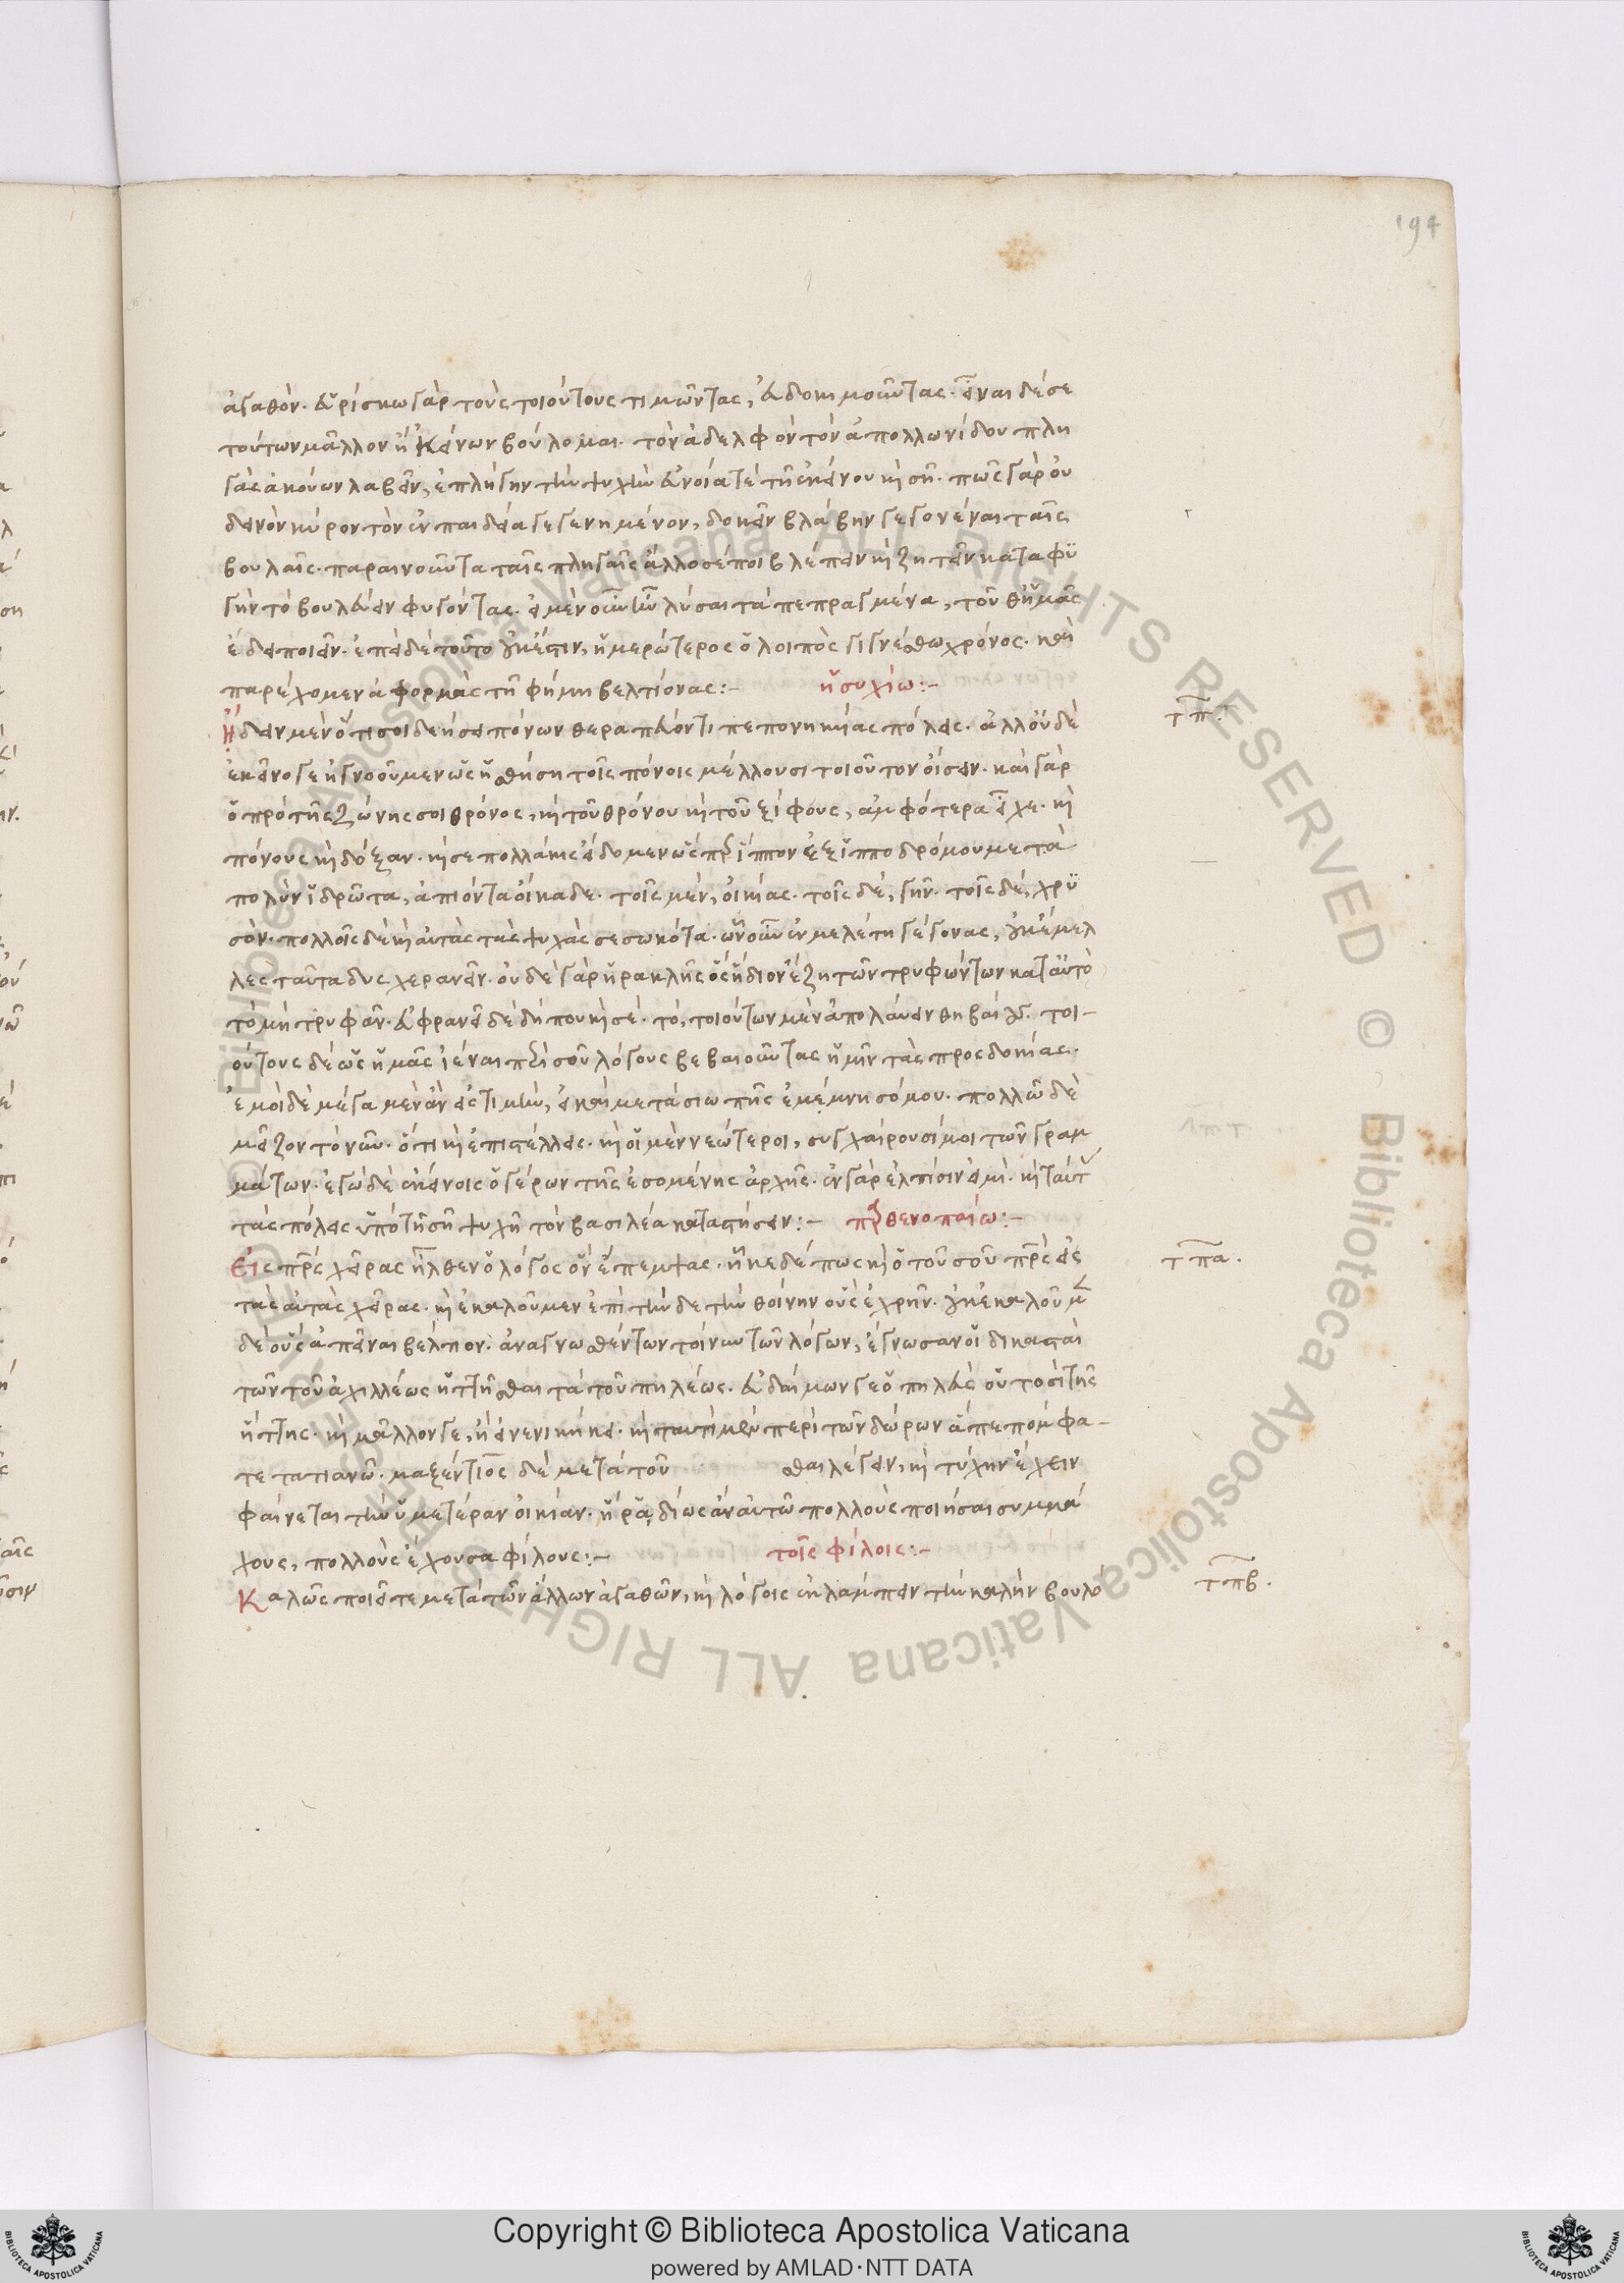 194
ἀγαθόν. εὑρίσκω γὰρ τοὺς τοιούτους τιμῶντας, εὐδοκιμοῦντας. εἶναι δέ σε
τούτων μᾶλλον ἢ κείνων βούλομαι. τὸν ἀδελφὸν τὸν ἀπολλωνίδου πλη
γὰς ἀκούων λαβεῖν, ἐπλήγην τὴν ψυχὴν εὐνοίᾳ τέ τῆ ἐκείνου κ(αὶ) σῆ. πῶς γὰρ οὐ
δεινὸν κύρον τὸν ἐν παιδεία γεγενημένον, δοκεῖν βλάβην γεγονέναι ταῖς
βουλαῖς. παραινοῦντα ταῖς πληγαῖς ἄλλοσέ ποι βλέπειν κ(αὶ) ζητεῖν καταφυ
γὴν τὸ βουλεύειν φυγόντας. εἰ μὲν οὖν ἦν λῦσαι τὰ πεπραγμένα, τοῦθ' ἡμᾶς
ἔδει ποιεῖν. ἐπεὶ δὲ τοῦτο οὐκ ἔστιν, ἡμερώτερος ὁ λοιπὸς γιγνέσθω χρόνος. καὶ
παρέχομεν ἀφορμὰς τῆ φήμη βελτίονας:-
ἡσυχίω:-
τπ.
Ἤιδειν μὲν ὅτι σοι δεήσει πόνων θεραπεύοντι πεπονηκυίας πόλεις. ἀλλ' οὐδὲ
ἐκεῖνό γε ἠγνοοῦμεν ὡς ἡσθήση τοῖς πόνοις μέλλουσι τοιοῦτον οἴσειν. καὶ γὰρ
ὁ πρὸ τῆς ζώνης σοι θρόνος, κ(αὶ) τοῦ θρόνου κ(αὶ) τοῦ ξίφους, ἀμφότερα εἶχε. κ(αὶ)
πόνους κ(αὶ) δόξαν. κ(αί) σε πολλάκις εἴδομεν ὥσπερ ἵππον ἐξ ἱπποδρόμου μετὰ
πολὺν ἱδρῶτα, ἀπιόντα οἴκαδε. τοῖς μὲν, οἰκίας. τοῖς δὲ, γῆν. τοῖς δὲ, χρυ
σόν. πολλοῖς δὲ κ(αὶ) αὐτὰς τὰς ψυχὰς σεσωκότα. ὧν οὖν ἐν μελέτη γέγονας, οὐκ ἔμελ
λες ταῦτα δυσχερανεῖν. οὐδὲ γὰρ ἡρακλῆς ὃς ἥδιον ἔζη τῶν τρυφώντων κατ' αὐτὸ
τὸ μὴ τρυφᾶν. εὐφρανεῖ δὲ δή που κ(αὶ) σὲ. τὸ, τοιούτων μὲν ἀπολαύειν θηβαίους. τοι-
ούτους δὲ ὡς ἡμᾶς ἰέναι περὶ σοῦ λόγους βεβαιοῦντας ἡμῖν τὰς προσδοκίας.
ἐμοὶ δὲ μέγα μὲν ἂν εἰς τιμὴν, εἰ καὶ μετὰ σιωπῆς ἐμέμνησό μου. πολλῶ δὲ
μεῖζον τὸ νῦν. ὅτι κ(αὶ) ἐπιστέλλεις. κ(αὶ) οἱ μὲν νεώτεροι, συγχαίρουσί μοι τῶν γραμ
μάτων. ἐγὼ δὲ ἐκείνοις ὁ γέρων τῆς ἐσομένης ἀρχῆς. ἐν γὰρ ἐλπίσιν εἰμὶ. κ(αὶ) ταύτ(ας)
τὰς πόλεις ὑπὸ τῆ σῆ ψυχῆ τὸν βασιλέα καταστήσειν:- παρθενοπαίω:-
τπα.
Εἰς πατρὸς χεῖρας ἦλθεν ὁ λόγος ὃν ἔπεμψας. ἧκε δέ πως κ(αὶ) ὁ τοῦ σοῦ πατρὸς εἰς
τὰς αὐτὰς χεῖρας. κ(αὶ) ἐκαλοῦμεν ἐπὶ τήνδε τὴν θοίνην οὓς ἐχρῆν. οὐκ ἐκαλοῦμ(εν)
δὲ οὓς ἀπεῖναι βέλτιον. ἀναγνωσθέντων τοίνυν τῶν λόγων, ἔγνωσαν οἱ δικασταὶ
τῶν τοῦ ἀχιλλέως ἡττῆσθαι τὰ τοῦ πηλέως. εὐδαίμων γε ὁ πηλεὺς οὑτοσὶ τῆς
ἥττης. κ(αὶ) μᾶλλόν γε, ἢ εἰ νενικήκει. κ(αὶ) ταυτὶ μὲν περὶ τῶν δώρων ἃ πεπόμφα-
τε τατιανῶ. μαξέντιος δὲ μετὰ τοῦ σθαι λέγειν, κ(αὶ) τύχην ἔχειν
φαίνεται τὴν ὑμετέραν οἰκίαν. ἣ ῥᾳδίως ἂν αὐτῶ πολλοὺς ποιήσαι συμμά
χους, πολλοὺς ἔχουσα φίλους:-
τοῖς φίλοις:-
τπβ.
Καλῶς ποιεῖτε μετὰ τῶν ἄλλων ἀγαθῶν, κ(αὶ) λόγοις ἐκλάμπειν τὴν καλὴν βουλό
Copyright © Biblioteca Apostolica Vaticana
powered by AMLAD·NTT DATA